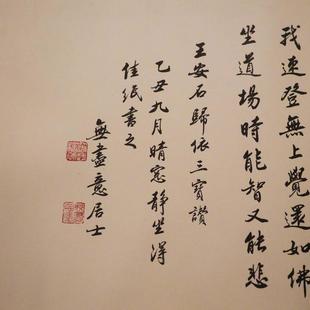 我速登無上覺還如佛
坐道場時能智又能悲
王安石歸依三寶讚
乙丑九月晴窓靜坐得
佳紙書之
無盡意居士